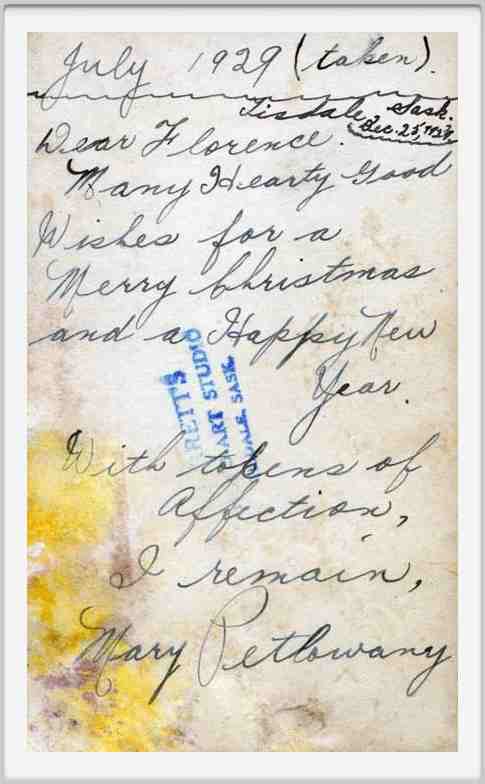 July 1929 (taken).
Tisdale, Sask.
Dec. 25,
Dear Florence.
Many Hearty Good
Wishes for a
Merry Christmas
and a Happy New
Year.
With tokens of
Affection,
I remain,
Mary Petlowany
RETT'S
ART STUDIO
DALE, SASK.